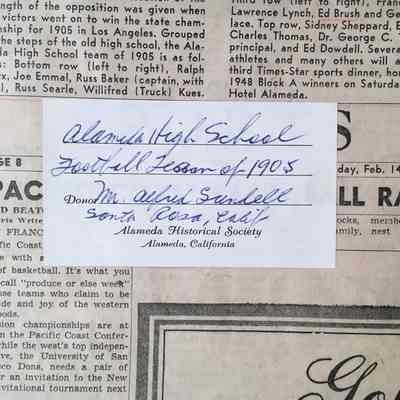 ngth of the opposition was given when
victors went on to win the state cham-
ship for 1905 in Los Angeles. Grouped
the steps of the old high school, the Ala-
High School team of 1905 is as fol-
: Bottom row (left to right), Ralph
rx, Joe Emmal, Russ Baker (captain, with
l), Russ Searle, Willifred (Truck) Kues.
Third row (left to right),
Lawrence Lynch, Ed Brush and Ge
lace. Top row, Sidney Sheppard, E
Charles Thomas, Dr. George C. T
principal, and Ed Dowdell. Several
athletes and many others will a
third Times-Star sports dinner, hon
1948 Block A winners on Saturday
Hotel Alameda.
Alameda High School
Football Team of 1905
Donor M. Alfred Sundell
Santa Rosa, Calif
Alameda Historical Society
Alameda, California
S
GE 8
day, Feb. 14
PAC
L RA
D BEATO
rts Write
FRANC
ific Coast
e with a
f basketball. It's what you
call "produce or else week"
ose teams who claim to be
ide and joy of the western
ods.
sion championships are at
n the Pacific Coast Confer-
while the west's top indepen-
ve, the University of San
co Dons, needs a pair of
r an invitation to the New
vitational tournament next
ocks, membe
amily, nest
Gol